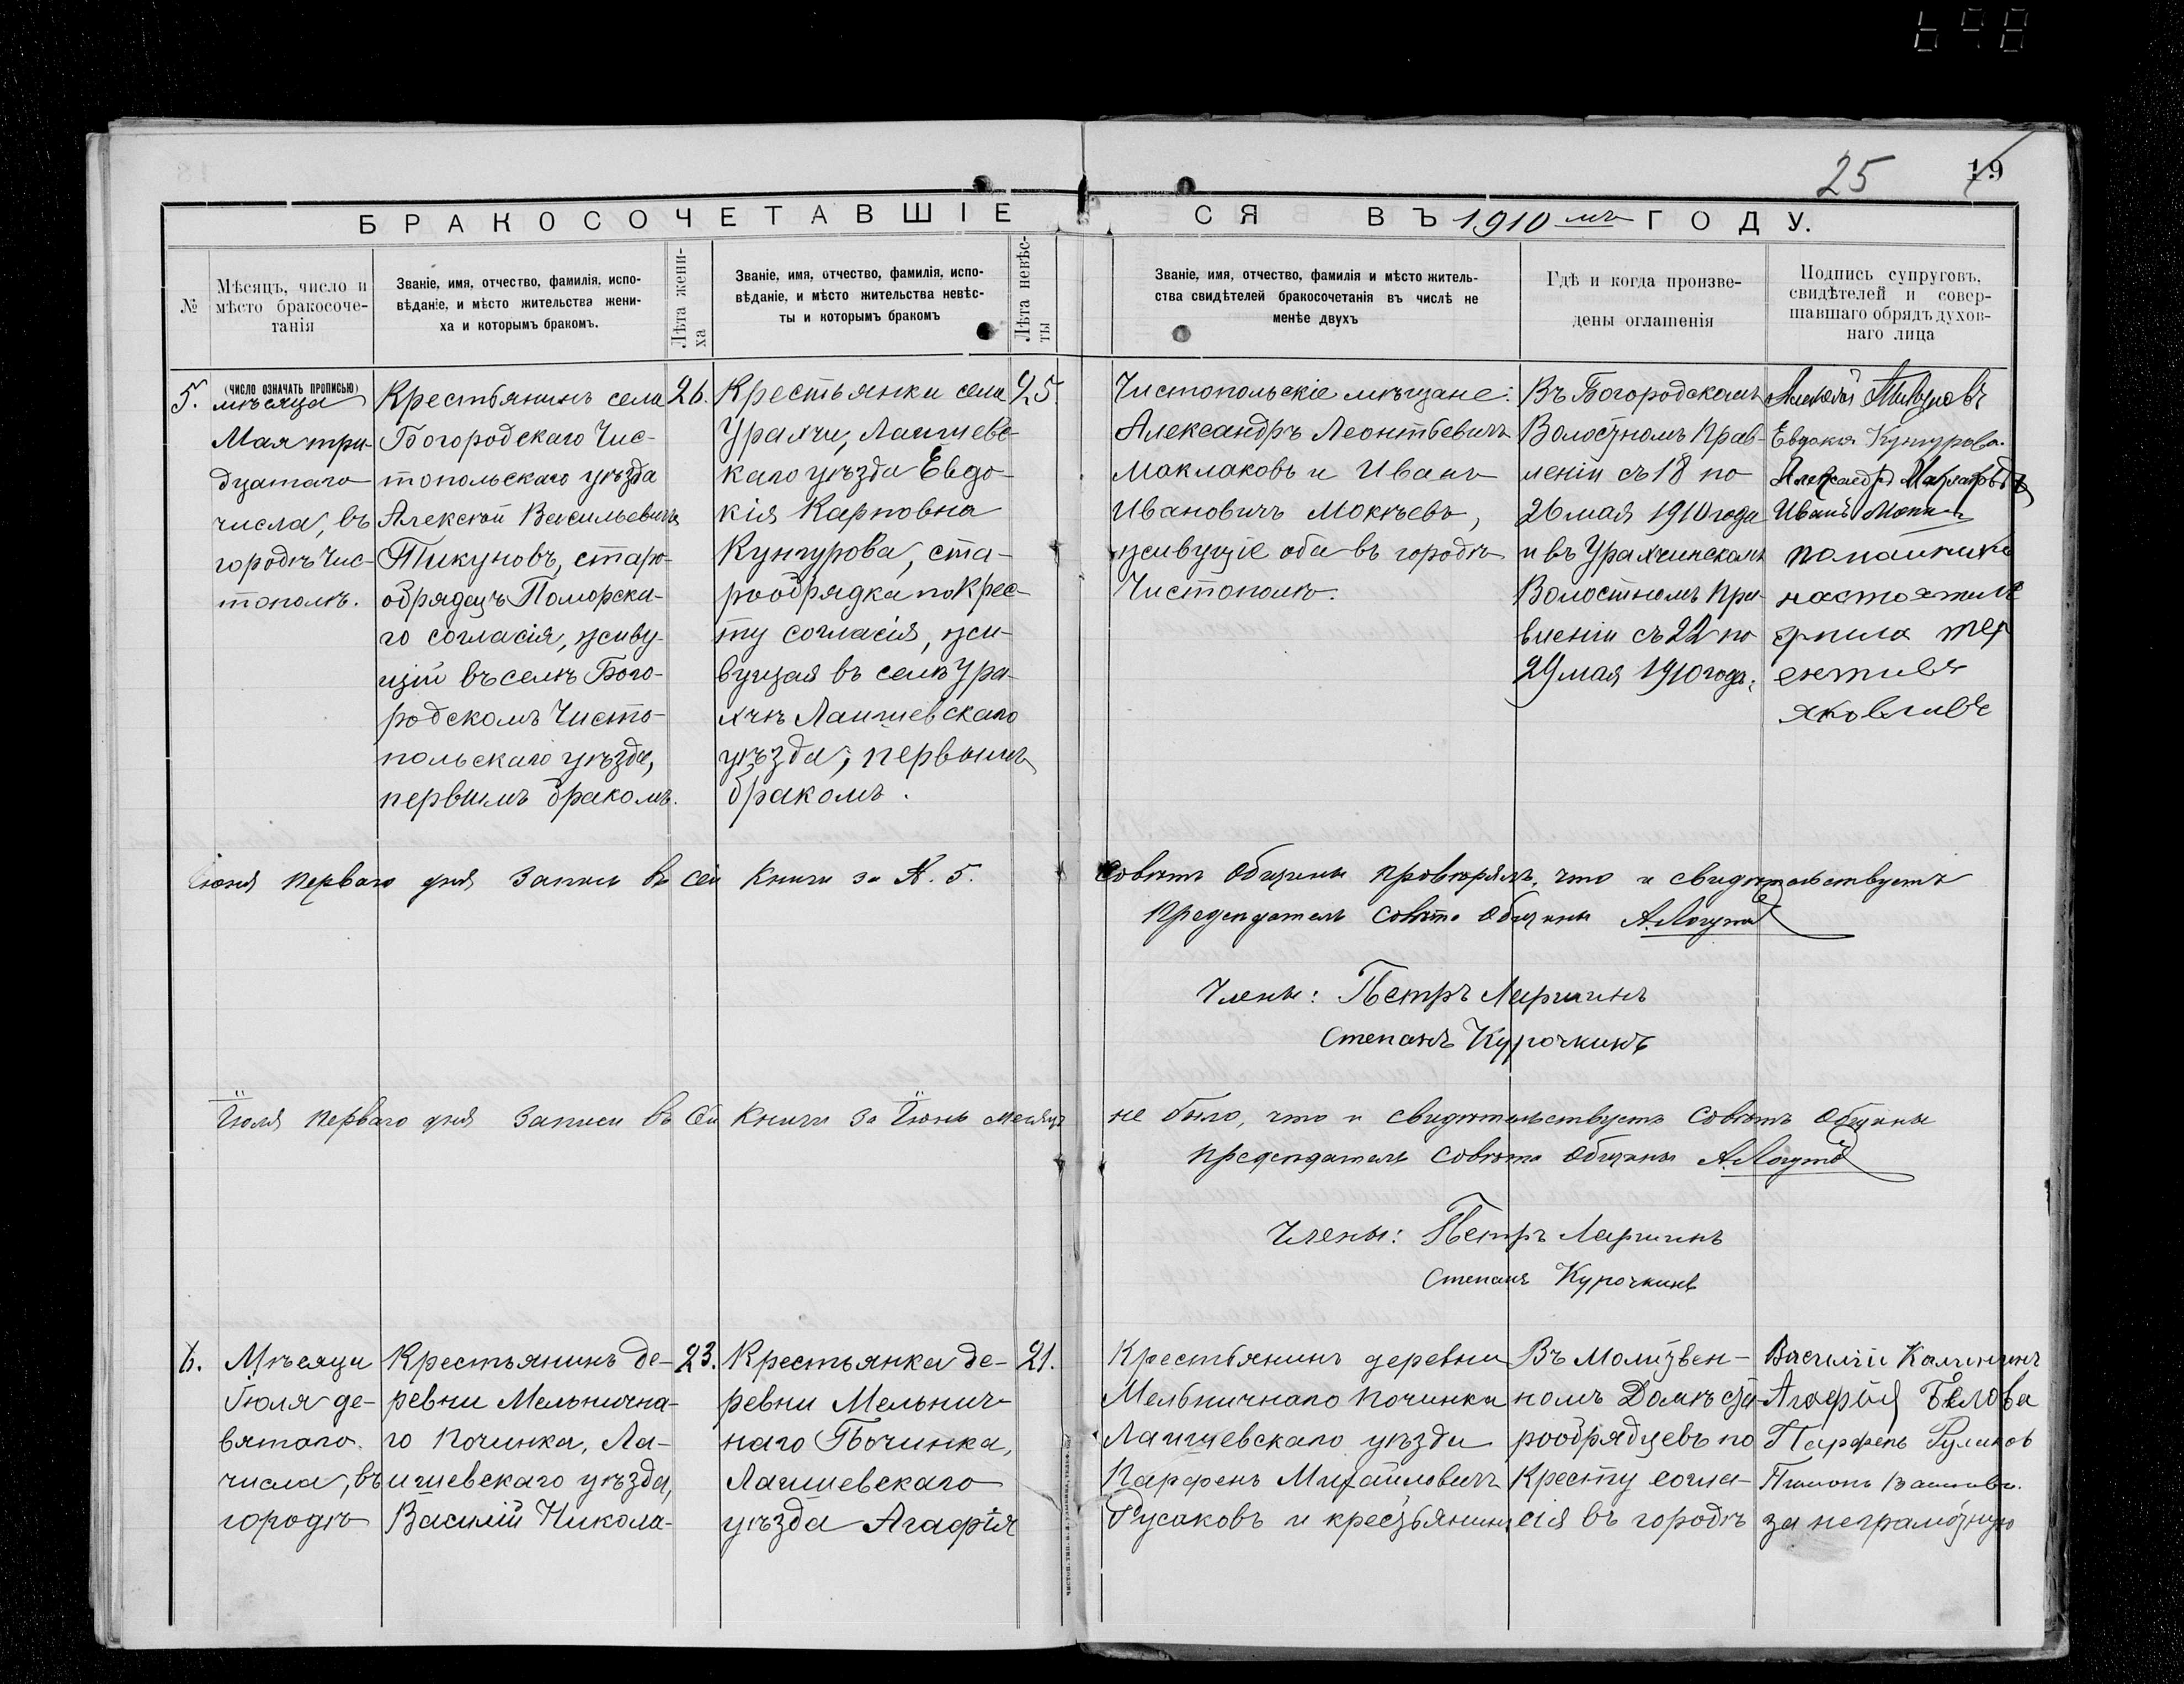 25 19
БРАКОСОЧЕТАВШІЕ
СЯ ВЪ 1910 мъ ГОДУ.
№
Мѣсяцъ, число и
мѣсто бракосоче-
танія
Званіе, имя, отчество, фамилія, испо-
вѣданіе, и мѣсто жительства жени-
ха и которымъ бракомъ.
Лѣта жени-
ха
Званіе, имя, отчество, фамилія, испо-
вѣданіе, и мѣсто жительства невѣс-
ты и которымъ бракомъ
Лѣта невѣс-
ты
Званіе, имя, отчество, фамилія и мѣсто житель-
ства свидѣтелей бракосочетанія въ числѣ не
менѣе двухъ
Гдѣ и когда произве-
дены оглашенія
Подпись супруговъ,
свидѣтелей и совер-
шавшаго обрядъ духов-
наго лица
5.
(число означать прописью)
мѣсяца
Мая три-
дцатаго
числа, въ
городѣ Чис-
тополѣ.
Крестьянинъ села
Богородскаго Чис-
топольскаго уѣзда
Алексѣй Васильевичъ
Тикуновъ, старо-
обрядецъ Поморска-
го согласія, живу-
щій въ селѣ Бого-
родскомъ Чисто-
польскаго уѣзда,
первымъ бракомъ.
26.
Крестьянки села
Урахчи, Лаишевс-
каго уѣзда Евдо-
кія Карповна
Кунгурова, ста-
рообрядка по Крес-
ту согласія, жи-
вущая въ селѣ Ура-
хчѣ Лаишевскаго
уѣзда, первымъ
бракомъ.
25.
Чистопольскіе мѣщане:
Александръ Леонтьевичъ
Маклаковъ и Иванъ
Ивановичъ Мокѣевъ,
живущіе оба въ городѣ
Чистополѣ.
Въ Богородскомъ
Волостномъ Прав-
леніи съ 18 по
26 мая 1910 года
и въ Урахчинскомъ
Волостномъ Пра-
вленіи съ 22 по
29 мая 1910 года.
Алексей Тикуновъ
Евдокия Кунгурова
Александръ Маклаковъ
Иванъ
настоятиль
яковливъ
Іюня перваго дня запись въ сей книги за №. 5.
Совѣтъ Общины провѣрялъ, что и свидѣтельствуетъ
Председатель Совѣта Общины А. Логутов
Члены: Петръ Ларгинъ
Степанъ Курочкинъ
Іюля перваго дня записи въ сей книги за Іюнь месяцъ
не было, что и свидѣтельствуетъ Совѣтъ Общины
председатель Совѣта Общины А. Логутов
Члены: Петръ Ларгинъ
Степанъ Курочкинъ
6.
Мѣсяца
Іюля де-
вятаго
числа, въ
городѣ
Крестьянинъ де-
ревни Мельнична-
го Починка, Ла-
ишевскаго уѣзда,
Василій Никола-
23.
Крестьянка де-
ревни Мельнич-
наго Починка,
Лаишевскаго
уѣзда Агафія
21.
Крестьянинъ деревни
Мельничнаго Починка
Лаишевскаго уѣзда
Парфенъ Михайловичъ
Русаковъ и крестьянинъ
Въ Молитвен-
номъ Домѣ ста-
рообрядцевъ по
Кресту согла-
сія въ городѣ
Василій Калининъ
Агафия Белова
Парфенъ
за неграмотную